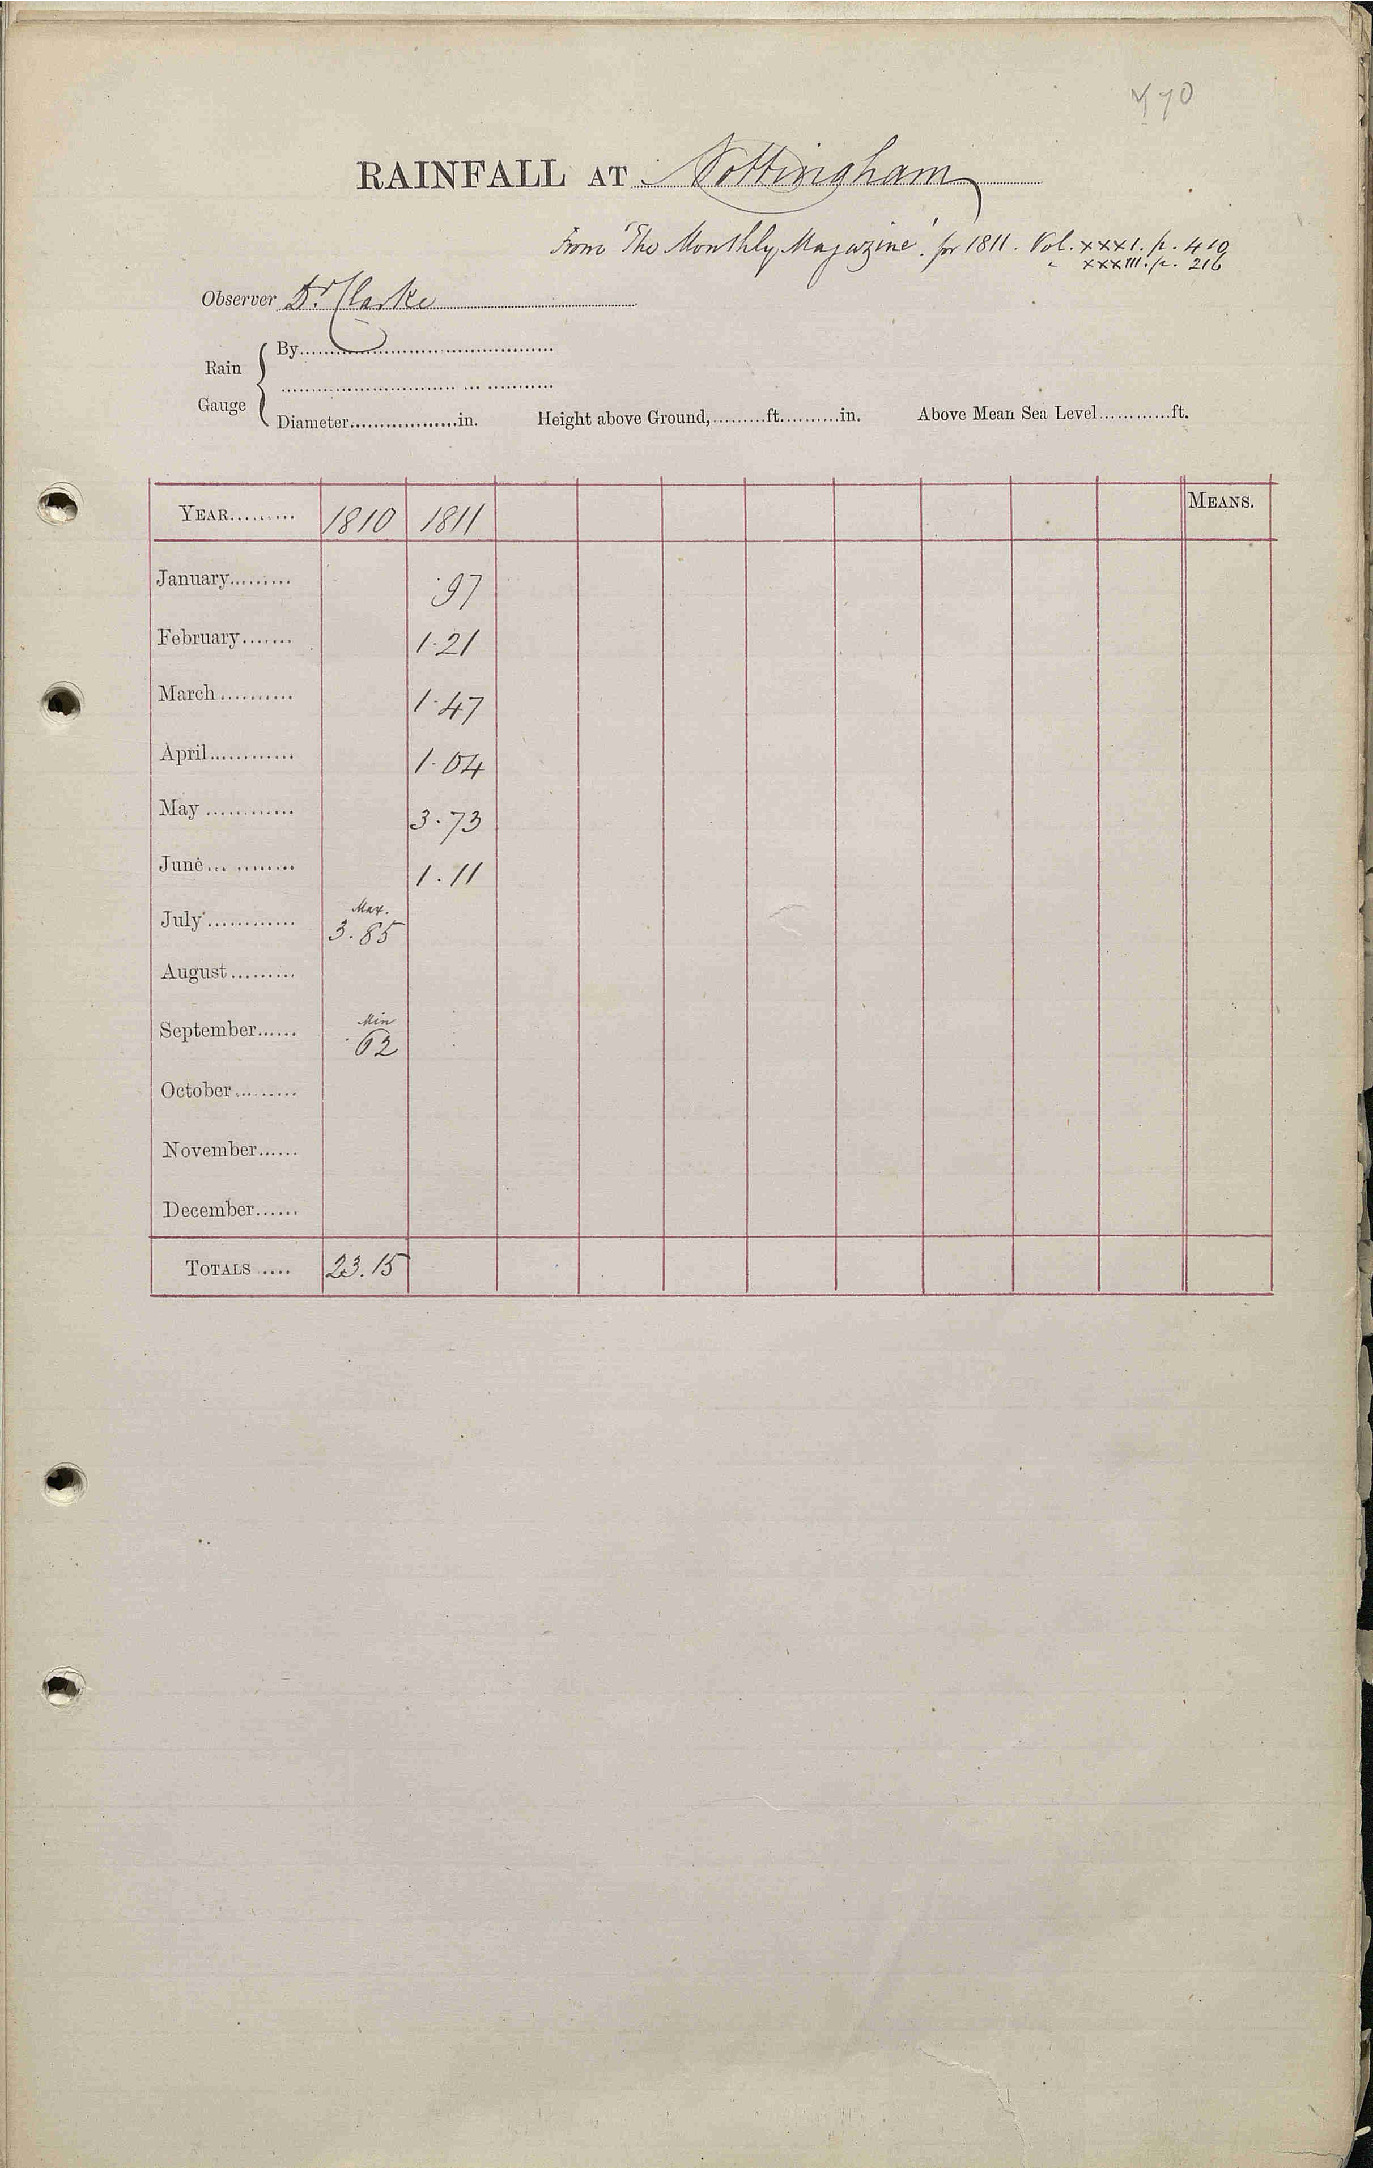 RAINFALL AT Nottingham
From 'The Monthly Magazine' for 1811. Vol. XXXI. p. 410
" XXXIII. p. 216
Observer Dr. Clarke
Rain Gauge { By
Diameter in. Height above Ground, ft. in. Above Mean Sea Level ft.
YEAR 1810 1811 MEANS.
January .97
February 1.21
March 1.47
April 1.04
May 3.73
June 1.11
July Max. 3.85
August
September Min .62
October
November
December
TOTALS 23.15